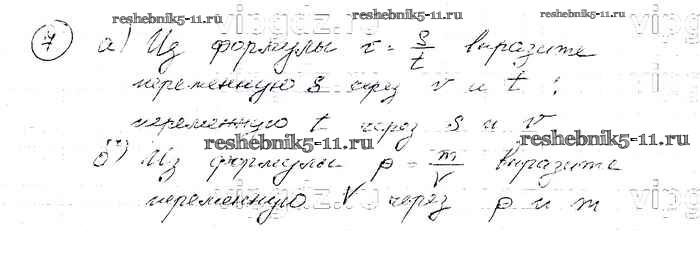 reshebnik5-11.ru reshebnik5-11.ru
7 а) Из формулы v = S/t выразите
переменную S через v и t;
переменную t через S и v
reshebnik5-11.ru
reshebnik5-11.ru
б) Из формулы ρ = m/V выразите
переменную V через ρ и m
reshebnik5-11.ru reshebnik5-11.ru